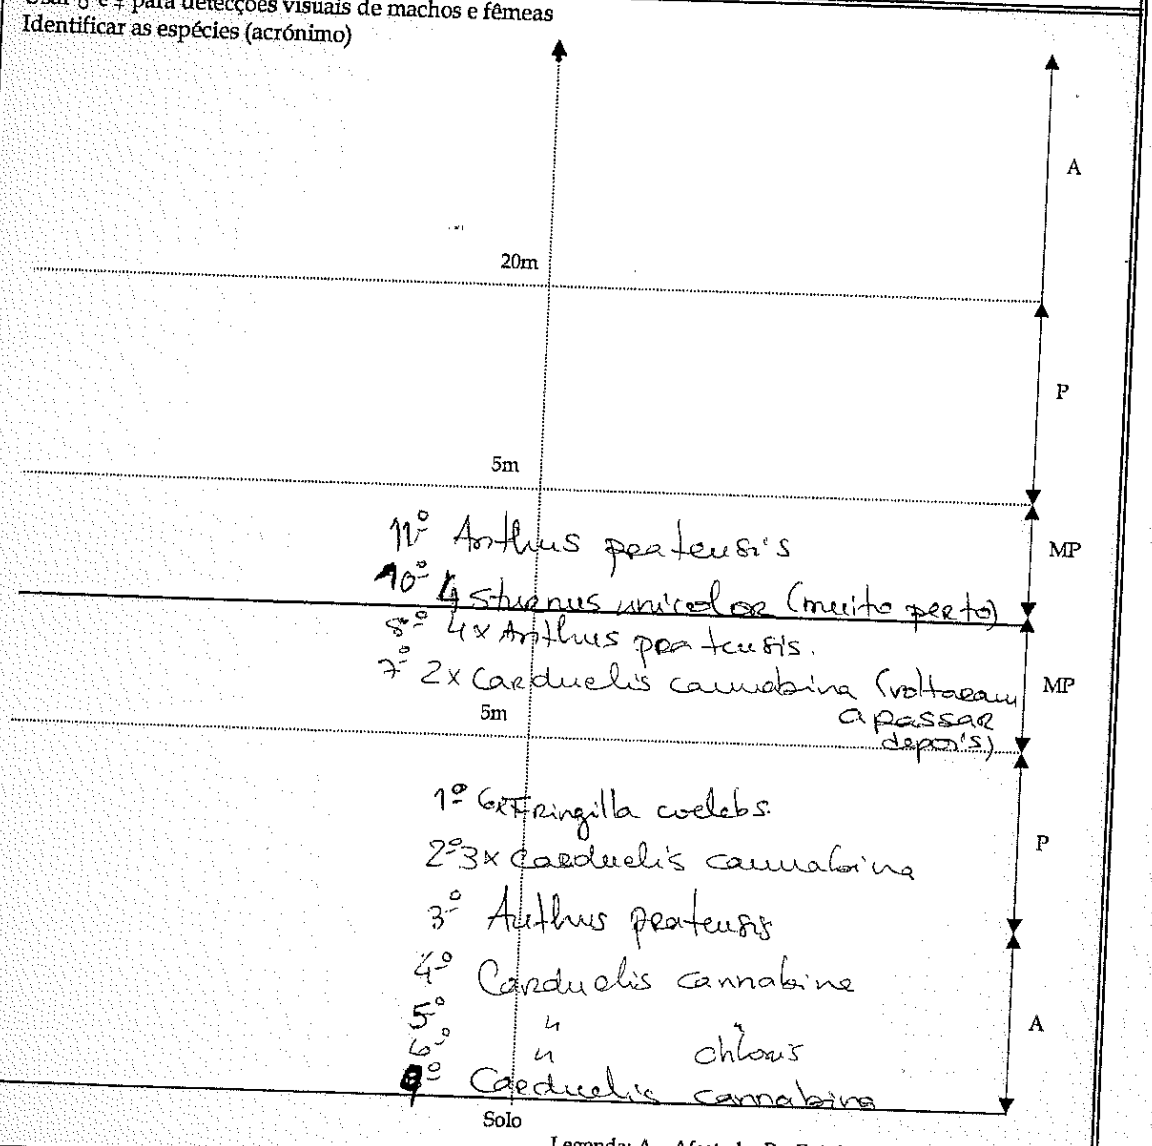 Usar ♂ e ♀ para detecções visuais de machos e fêmeas
Identificar as espécies (acrónimo)
A
20m
P
5m
11º Anthus pratensis
MP
10º 4 Sturnus unicolor (muito perto)
8º 4x Anthus pratensis.
7º 2x Carduelis cannabina (voltaram
MP
5m
a passar
depois)
1º 6x Fringilla coelebs.
2º 3x Carduelis cannabina
P
3º Anthus pratensis
4º Carduelis cannabina
5º " "
A
6º " chloris
9º Carduelis cannabina
Solo